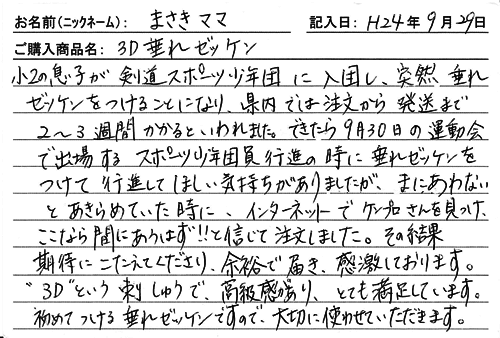 お名前(ニックネーム): まさきママ 記入日: H24年9月29日
ご購入商品名: 3D垂れゼッケン
小2の息子が剣道スポーツ少年団に入団し、突然垂れ
ゼッケンをつけることになり、県内では注文から発送まで
2〜3週間かかるといわれました。できたら9月30日の運動会
で出場するスポーツ少年団員行進の時に垂れゼッケンを
つけて行進してほしい気持ちがありましたが、まにあわない
とあきらめていた時に、インターネットでケンプロさんを見つけ、
ここなら間にあうはず!!と信じて注文しました。その結果
期待にこたえてくださり、余裕で届き、感激しております。
"3D"という刺しゅうで、高級感があり、とても満足しています。
初めてつける垂れゼッケンですので、大切に使わせていただきます。